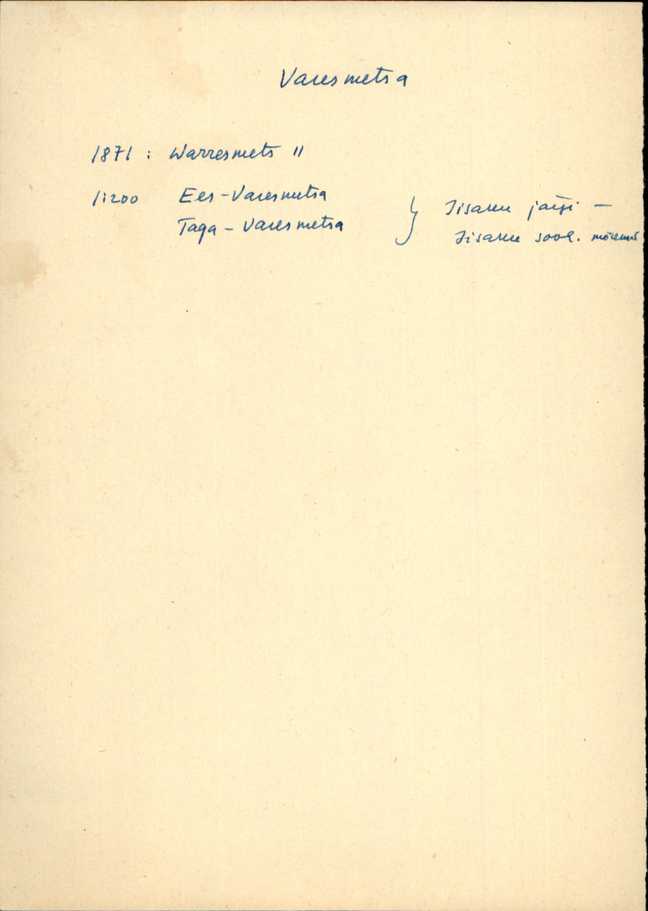 Varesmetsa
1871 : Warresmets II
1:200 Ees-Varesmetsa
Taga-Varesmetsa
} Iisaku järgi –
Iisaku sook.